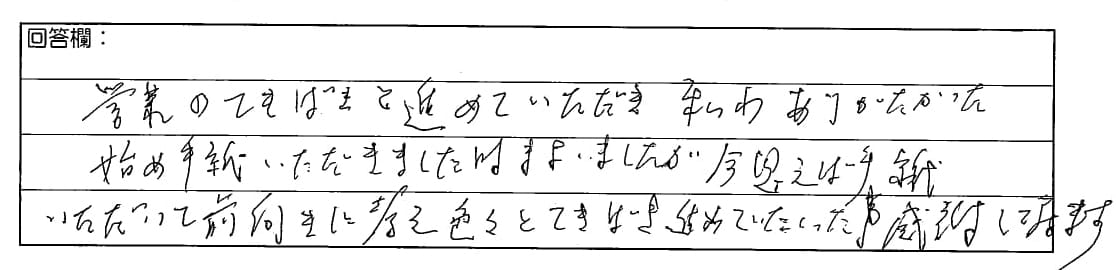 回答欄：
学業のてきぱきと進めていただき 私わ ありがたかった
始め手紙いただきました時まよいましたが 今思えば手紙
いただいて前向きに考え色々とてきぱき進めていただいた事感謝して居ます